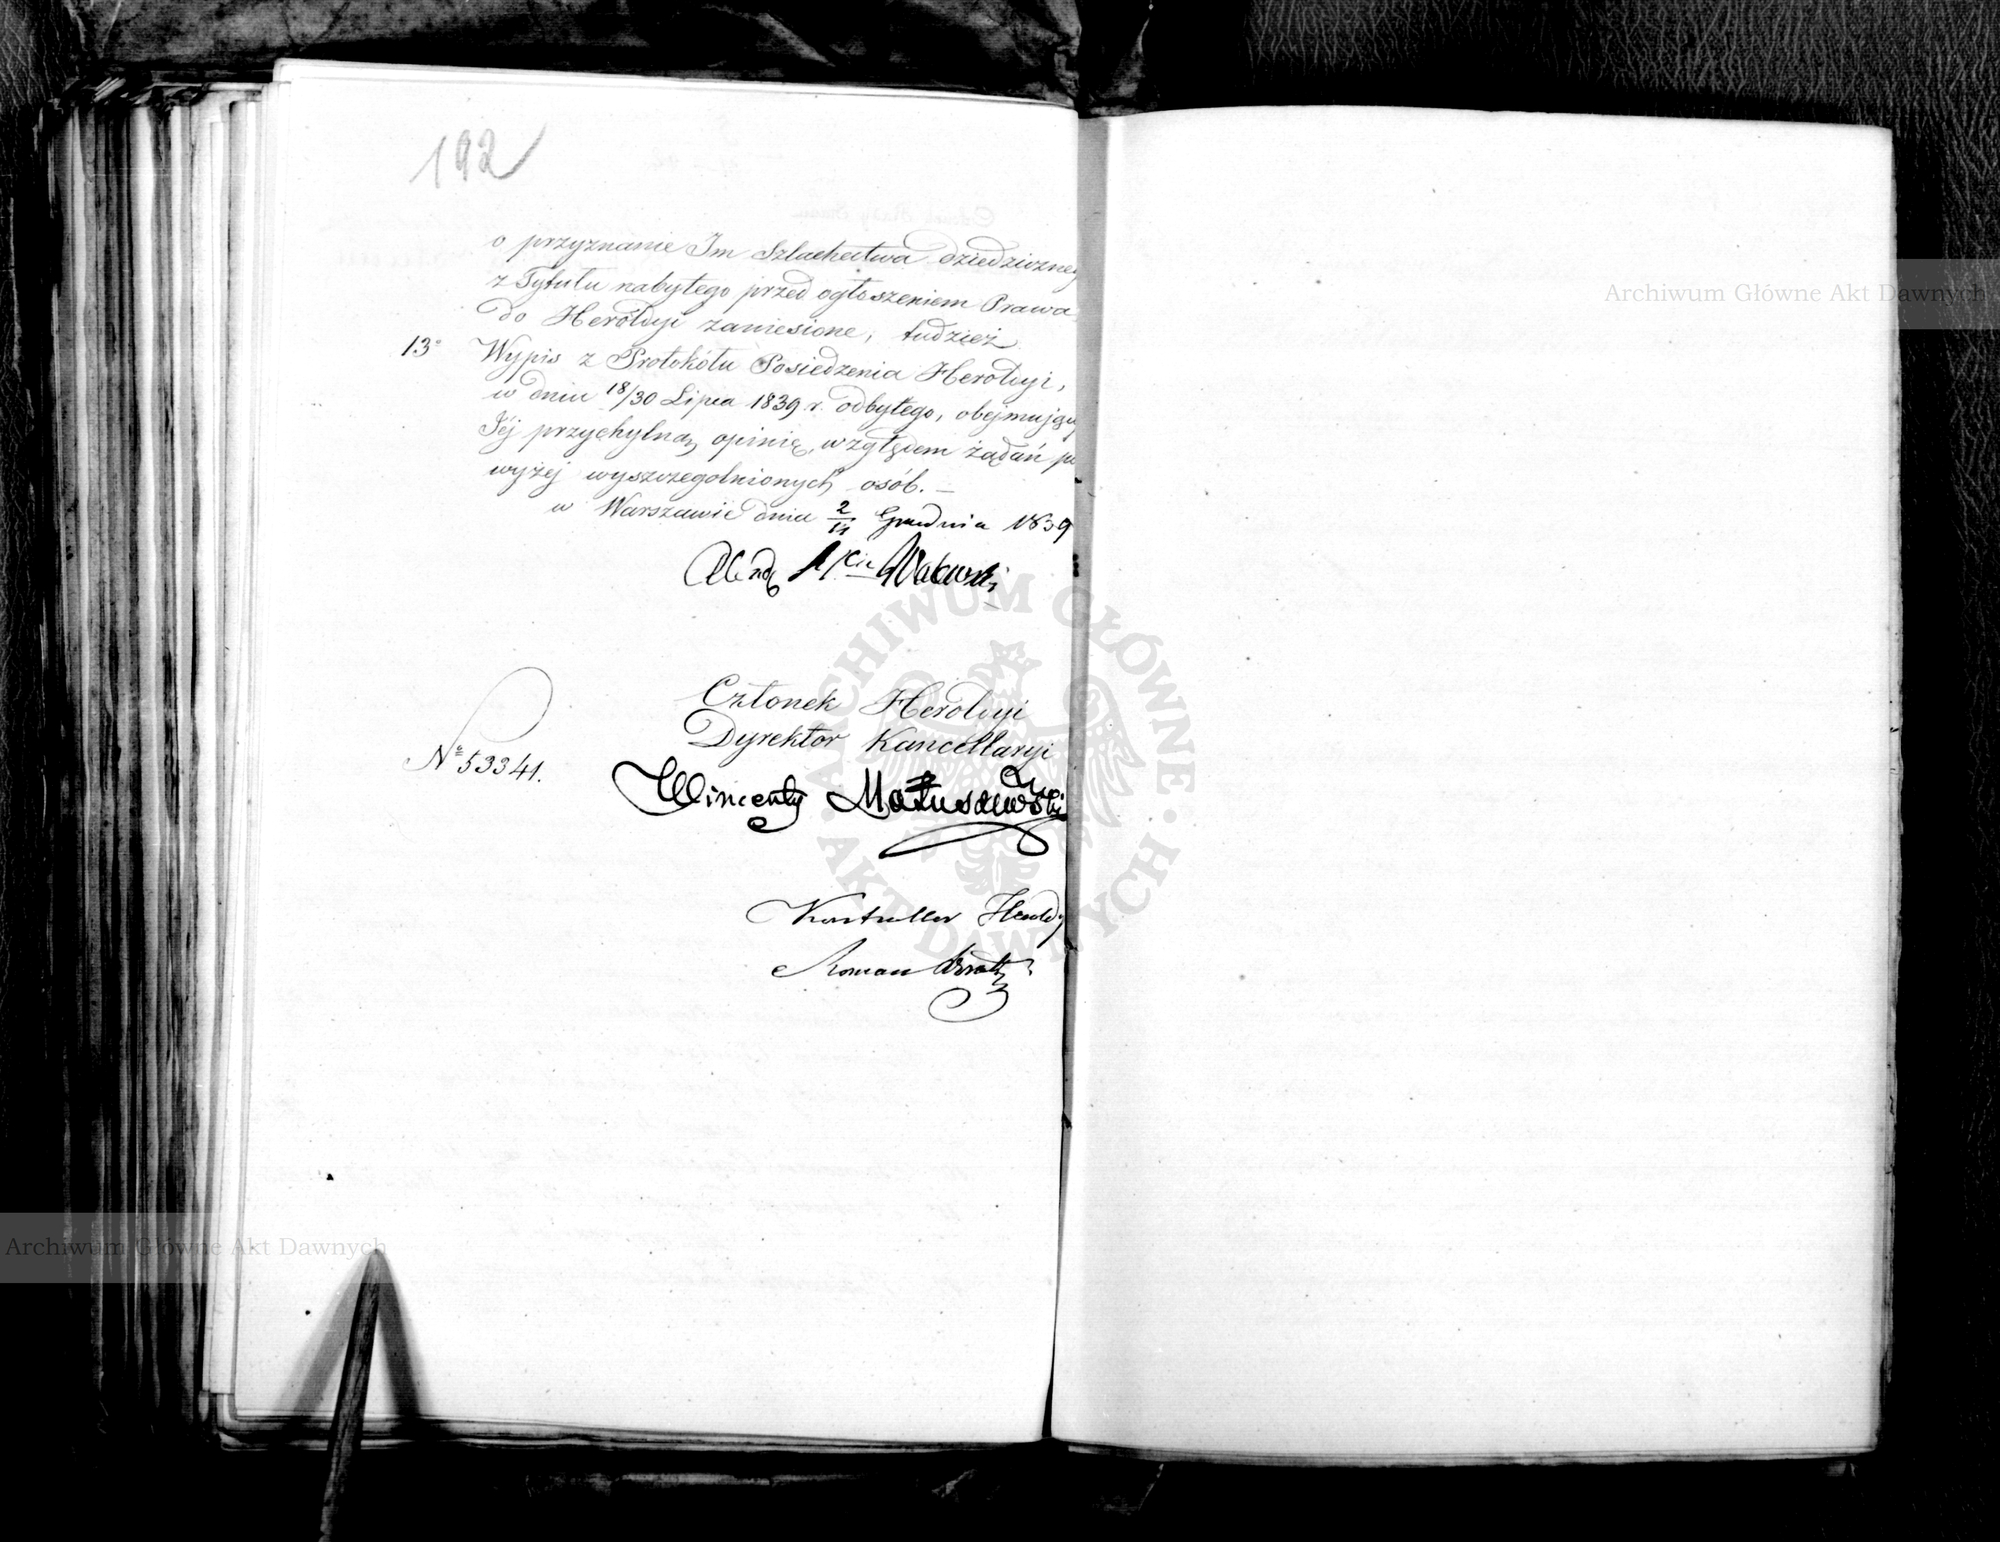 192
o przyznanie Im Szlachectwa dziedziczne
z Tytułu nabytego przed ogłoszeniem Prawa
do Heroldyi zaniesione, tudzież
13° Wypis z Protokółu Posiedzenia Heroldyi,
w dniu 18/30 Lipca 1839 r. odbytego, obejmujący
Jéj przychylną opinię, względem żądań po
wyżej wyszczegolnionych osób. —
w Warszawie dnia 2/14 Grudnia 1839
Członek Heroldyi
Dyrektor Kancellaryi
N° 53341.
Wincenty Matuszewski
Kontroller Heroldy
Roman
Archiwum Główne Akt Dawnych
Archiwum Główne Akt Dawnych
ARCHIWUM GŁÓWNE AKT DAWNYCH